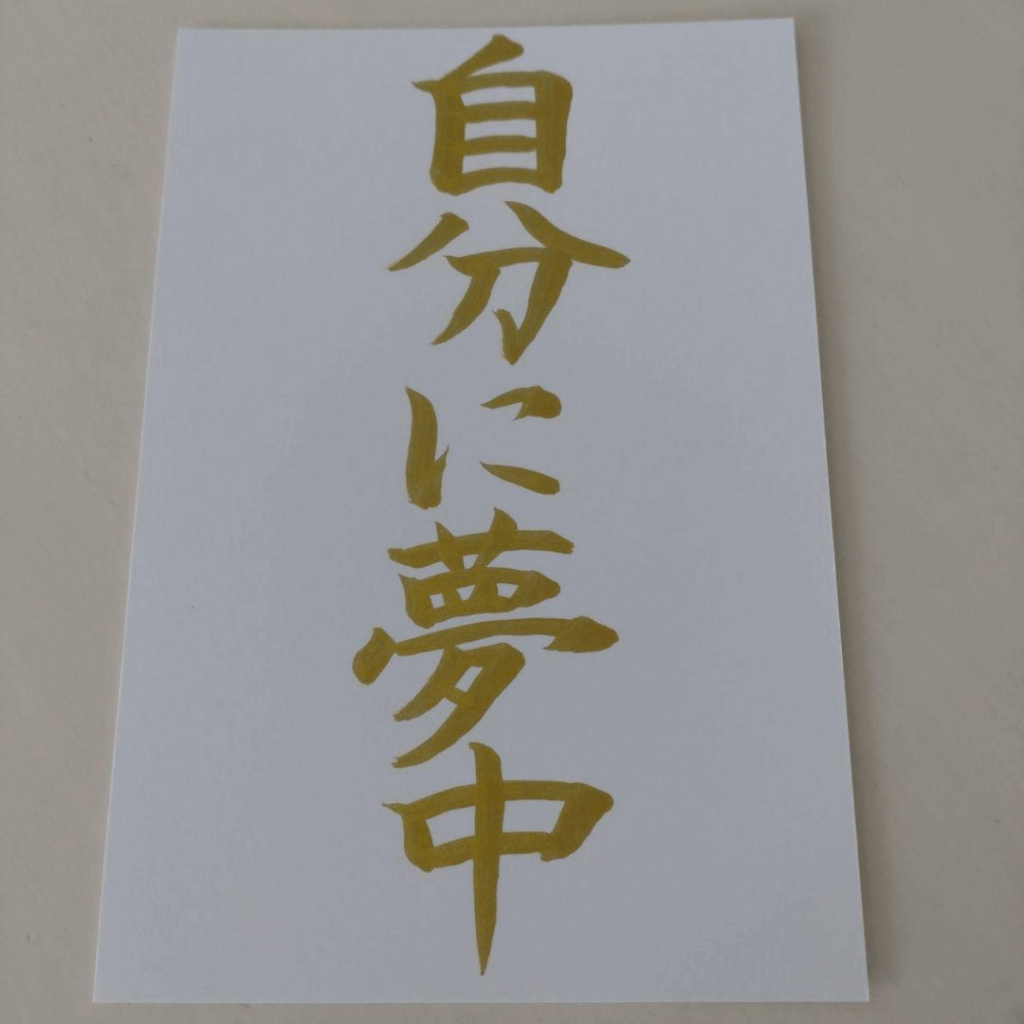 自分に夢中